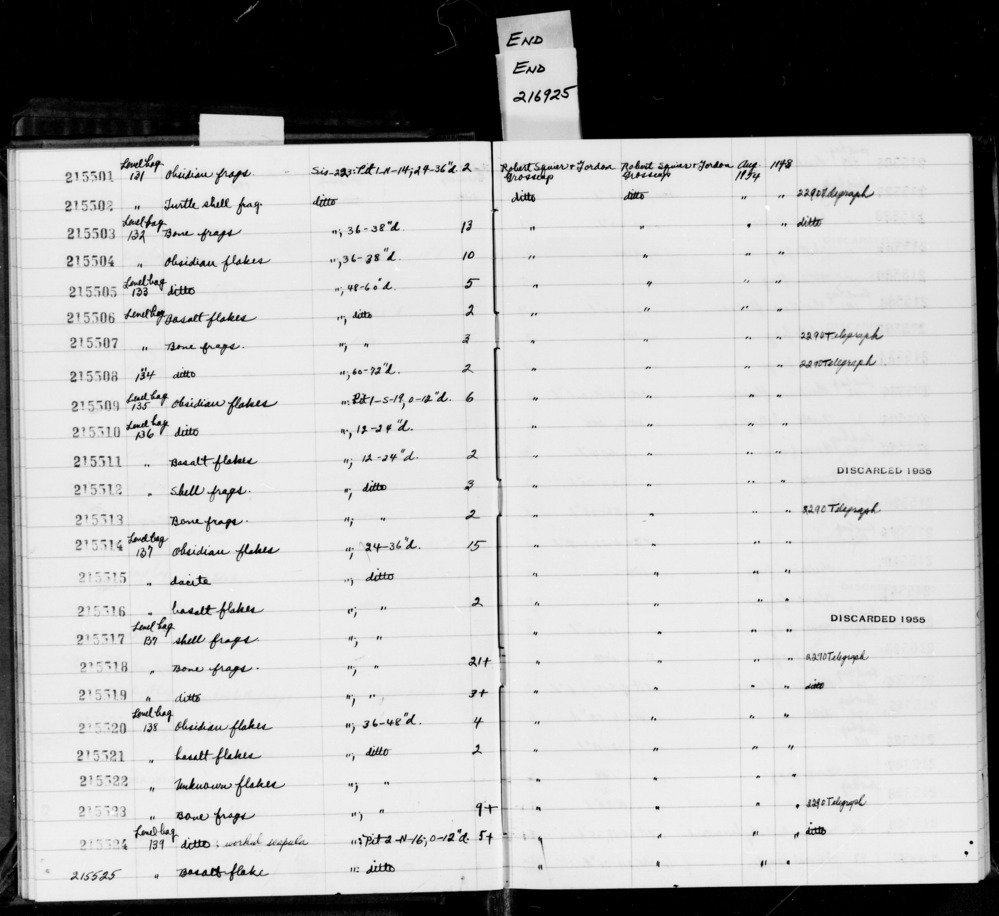 END
END
216925
215501 Level bag 131 Obsidian frags. Sis-223: Pit 1-N-14; 24-36"d. 2 Robert Squier + Gordon Grosscup Robert Squier + Gordon Grosscup Aug. 1954 1148
215502 " Turtle shell frag. ditto ditto ditto " " 2290 Telegraph
215503 Level bag 132 Bone frags "; 36-38"d. 13 " " " " ditto
215504 " Obsidian flakes "; 36-38"d. 10 " " " "
215505 Level bag 133 ditto "; 48-60"d. 5 " " " "
215506 Level bag Basalt flakes "; ditto 2 " " " "
215507 " Bone frags. "; " 3 " " " " 2290 Telegraph
215508 " 134 ditto "; 60-72"d. 2 " " " " 2290 Telegraph
215509 Level bag 135 Obsidian flakes ": Pit 1-S-19, 0-12"d. 6 " " " "
215510 Level bag 136 ditto "; 12-24"d. " " " "
215511 " Basalt flakes "; 12-24"d. 2 " " " " DISCARDED 1955
215512 " Shell frags. "; ditto 3 " " " "
215513 Bone frags. "; " 2 " " " " 2290 Telegraph
215514 Level bag 137 Obsidian flakes "; 24-36"d. 15 " " " "
215515 " dacite "; ditto " " " "
215516 " basalt flakes "; " 2 " " " "
215517 Level bag 137 shell frags. "; " " " " " DISCARDED 1955
215518 " Bone frags. "; " 21+ " " " " 2290 Telegraph
215519 " ditto "; " 3+ " " " " ditto
215520 Level bag 138 Obsidian flakes "; 36-48"d. 4 " " " "
215521 " basalt flakes "; ditto 2 " " " "
215522 " Unknown flakes "; " " " " "
215523 " Bone frags "; " 9+ " " " " 2290 Telegraph
215524 Level bag 139 ditto : worked scapula ": Pit 2-N-16; 0-12"d. 5+ " " " " ditto
215525 " Basalt flake ": ditto " " " "